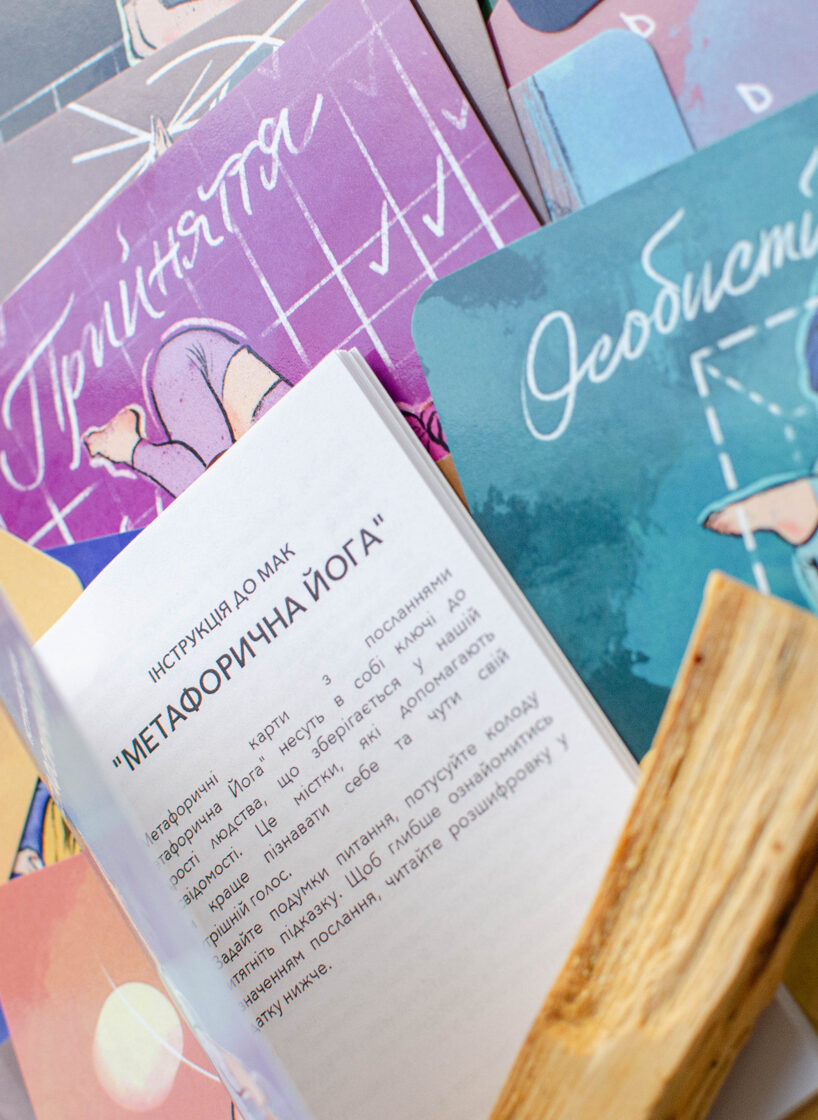 Прийняття
Особисті
ІНСТРУКЦІЯ ДО МАК
"МЕТАФОРИЧНА ЙОГА"
Метафоричні карти з посланнями
тафорична Йога" несуть в собі ключі до
рості людства, що зберігається у нашій
відомості. Це містки, які допомагають
краще пізнавати себе та чути свій
трішній голос.
Задайте подумки питання, потусуйте колоду
итягніть підказку. Щоб глибше ознайомитись
значенням послання, читайте розшифровку у
атку нижче.